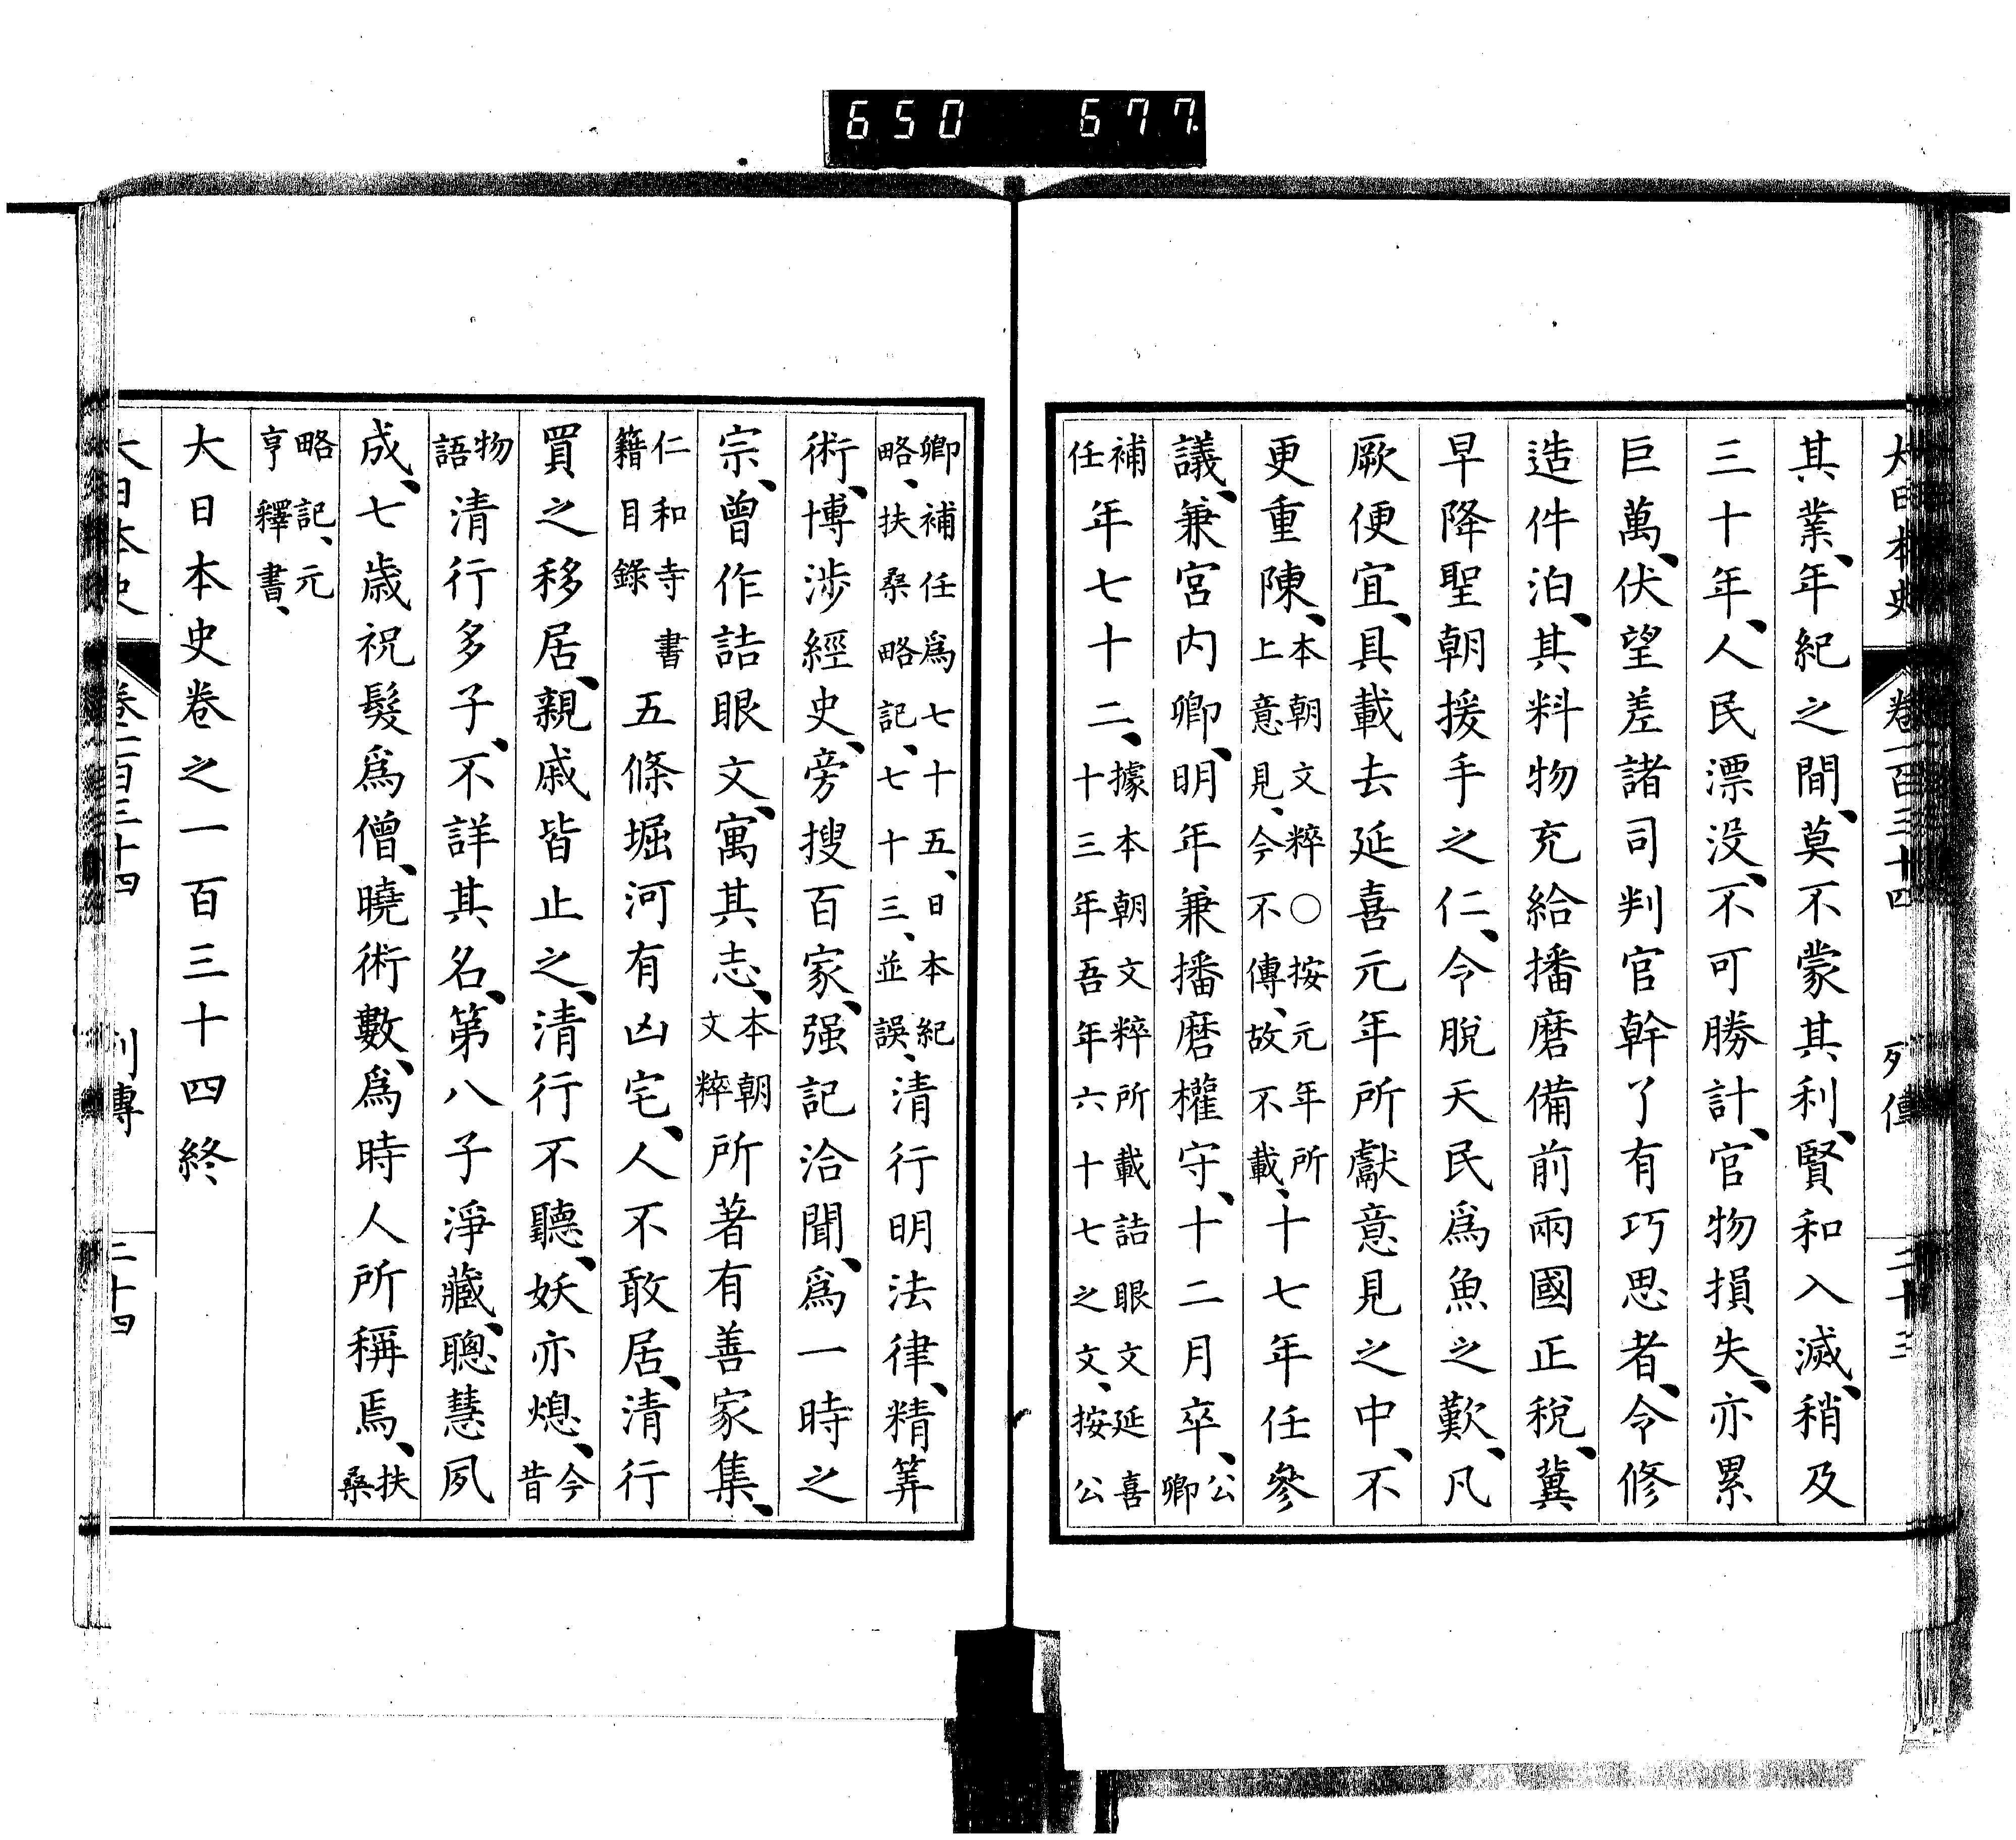 650 677.
大日本史 卷一百三十四 列傳 二十三
其業、年紀之間、莫不蒙其利、賢和入滅、稍及
三十年、人民漂没、不可勝計、官物損失、亦累
巨萬、伏望差諸司判官幹了有巧思者、令修
造件泊、其料物充給播磨備前兩國正稅、冀
早降聖朝援手之仁、令脫天民爲魚之歎、凡
厥便宜、具載去延喜元年所獻意見之中、不
更重陳、本朝文粹○按元年所上意見、今不傳、故不載、十七年任參
議、兼宮内卿、明年兼播磨權守、十二月卒、公卿
補任年七十二、據本朝文粹所載詰眼文延喜十三年年吾年六十七之文、按公
卿補任爲七十五、日本紀略、扶桑略記、七十三、並誤、清行明法律、精筭
術、博涉經史、旁搜百家、强記洽聞、爲一時之
宗、曾作詰眼文、寓其志、本朝文粹所著有善家集、
仁和寺書籍目錄五條堀河有凶宅、人不敢居、清行
買之移居、親戚皆止之、清行不聽、妖亦熄、今昔
物語清行多子、不詳其名、第八子淨藏、聰慧夙
成、七歲祝髮爲僧、曉術數、爲時人所稱焉、扶桑
略記、元亨釋書、
大日本史卷之一百三十四終
大日本史 卷一百三十四 列傳 二十四